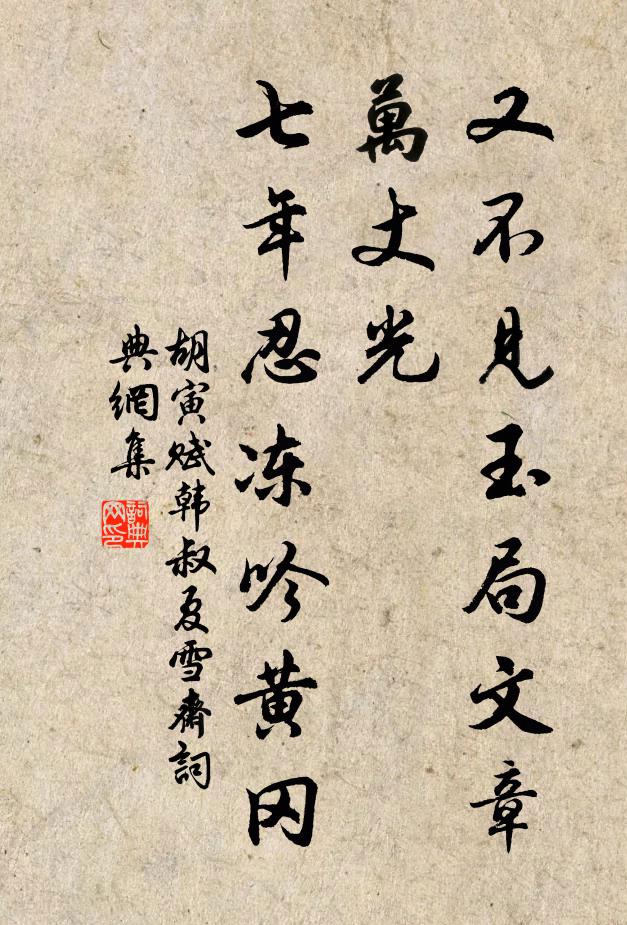 又不見玉局文章
萬丈光
七年忍冻吟黄冈
胡寅赋韩叔夏雪齋詞
典網集
詞典
网印